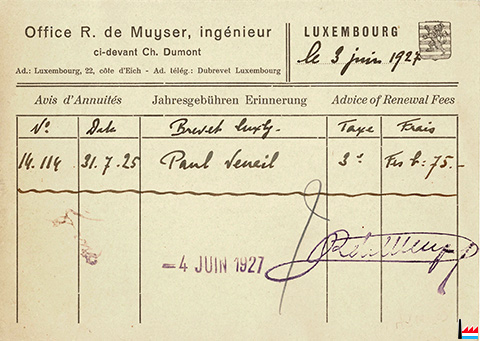 Office R. de Muyser, ingénieur
ci-devant Ch. Dumont
Ad.: Luxembourg, 22, côte d'Eich - Ad. télég.: Dubrevet Luxembourg
LUXEMBOURG
le 3 juin 1927
Avis d'Annuités Jahresgebühren Erinnerung Advice of Renewal Fees
No Date Brevet Luxbg. Taxe Frais
14.114 31.7.25 Paul 3e Frs b: 75.-
-4 JUIN 1927